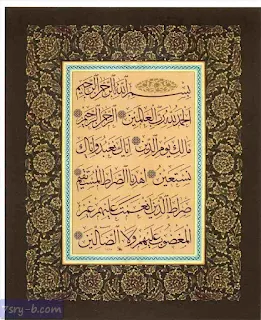 بسم الله الرحمن الرحيم
الحمد لله رب العالمين الرحمن الرحيم
مالك يوم الدين إياك نعبد وإياك
نستعين اهدنا الصراط المستقيم
صراط الذين أنعمت عليهم غير
المغضوب عليهم ولا الضالين
7sry-b.com